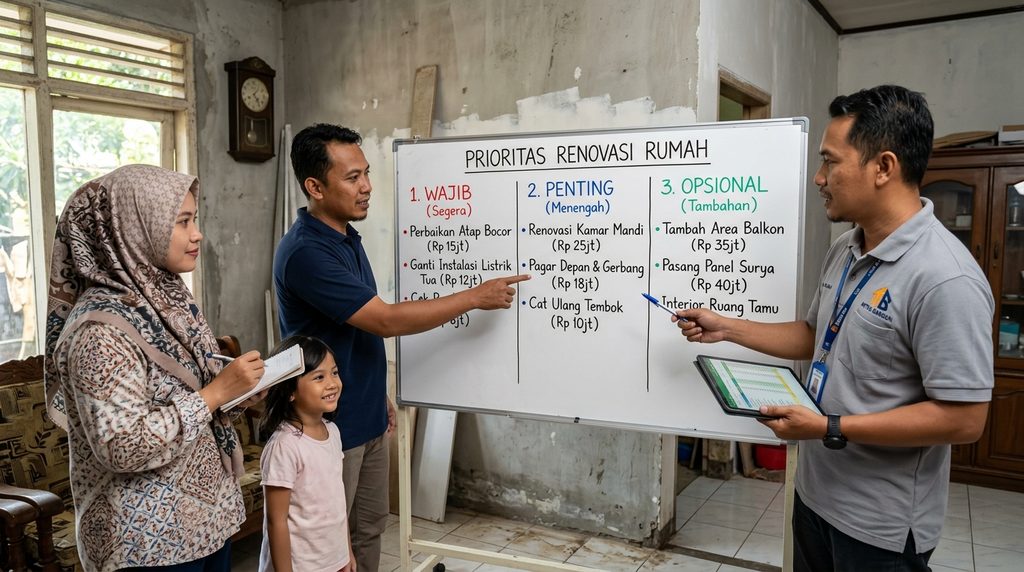 PRIORITAS RENOVASI RUMAH
1. WAJIB
(Segera)
• Perbaikan Atap Bocor
(Rp 15jt)
• Ganti Instalasi Listrik
Tua (Rp 12jt)
2. PENTING
(Menengah)
• Renovasi Kamar Mandi
(Rp 25jt)
• Pagar Depan & Gerbang
(Rp 18jt)
• Cat Ulang Tembok
(Rp 10jt)
3. OPSIONAL
(Tambahan)
• Tambah Area Balkon
(Rp 35jt)
• Pasang Panel Surya
(Rp 40jt)
Interior Ruang Tamu